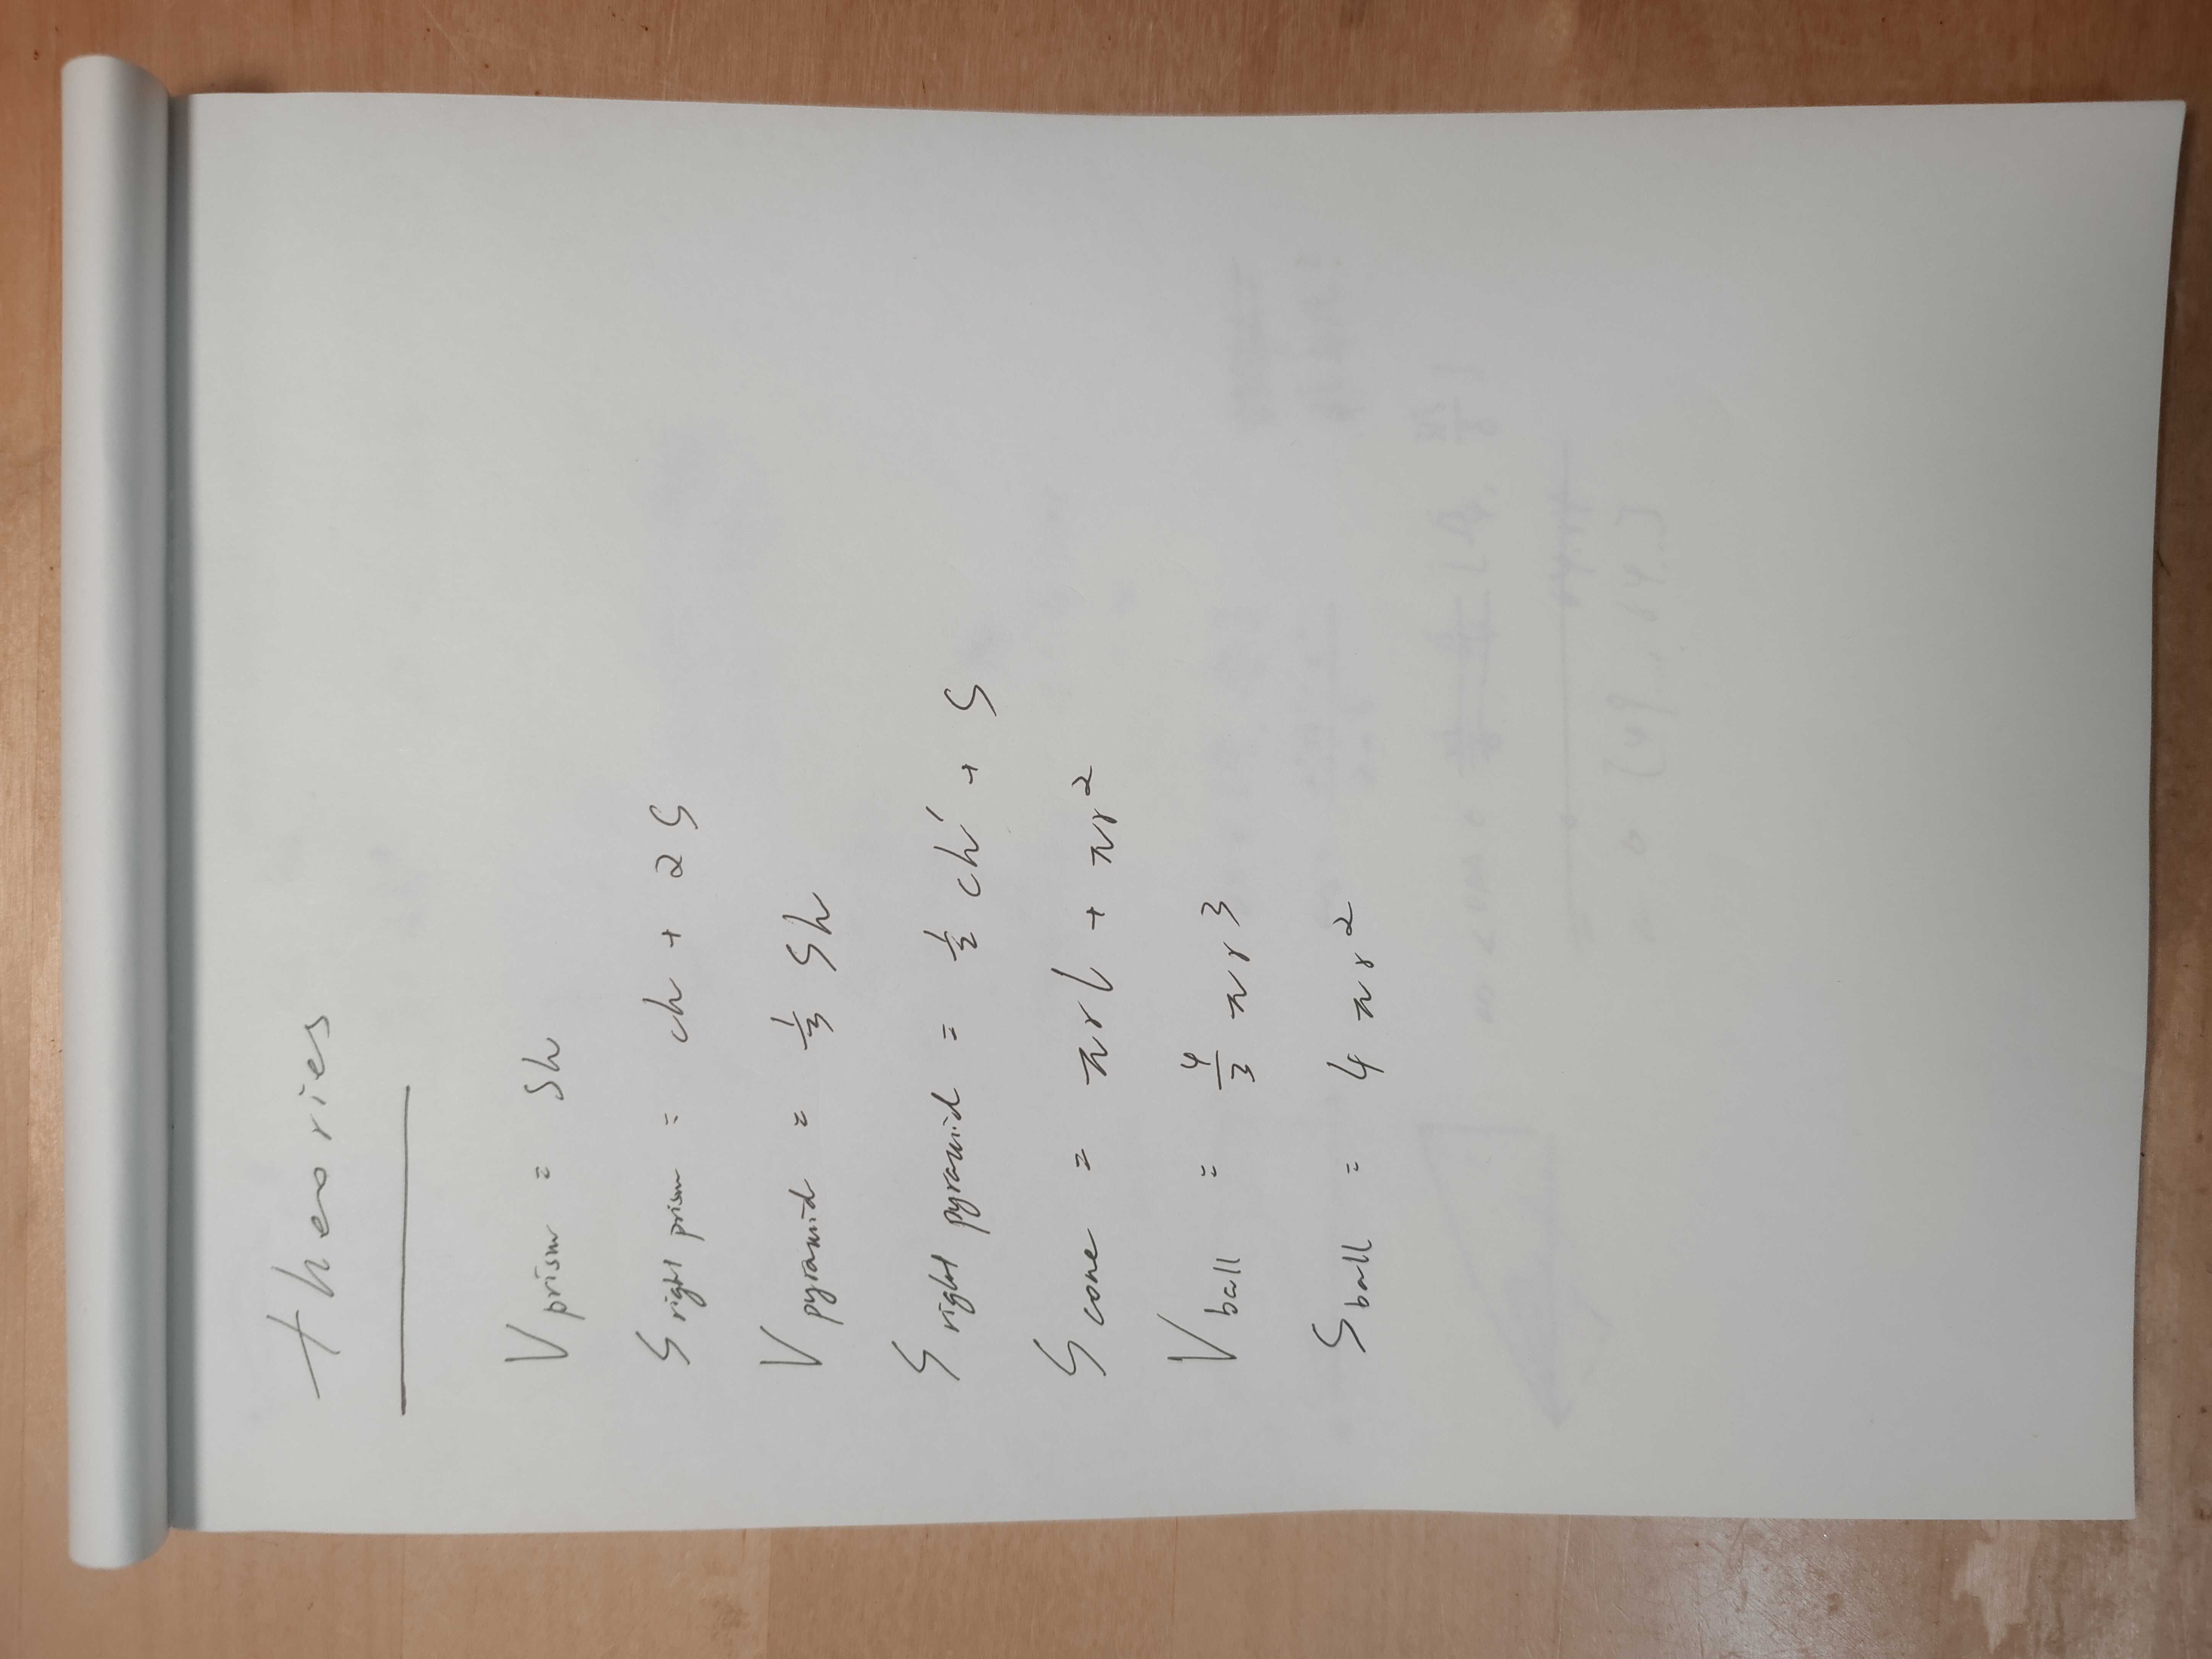 theories
V prism = Sh
S right prism = ch + 2S
V pyramid = 1/3 Sh
S right pyramid = 1/2 ch' + S
S cone = πrl + πr²
V ball = 4/3 πr³
S ball = 4πr²